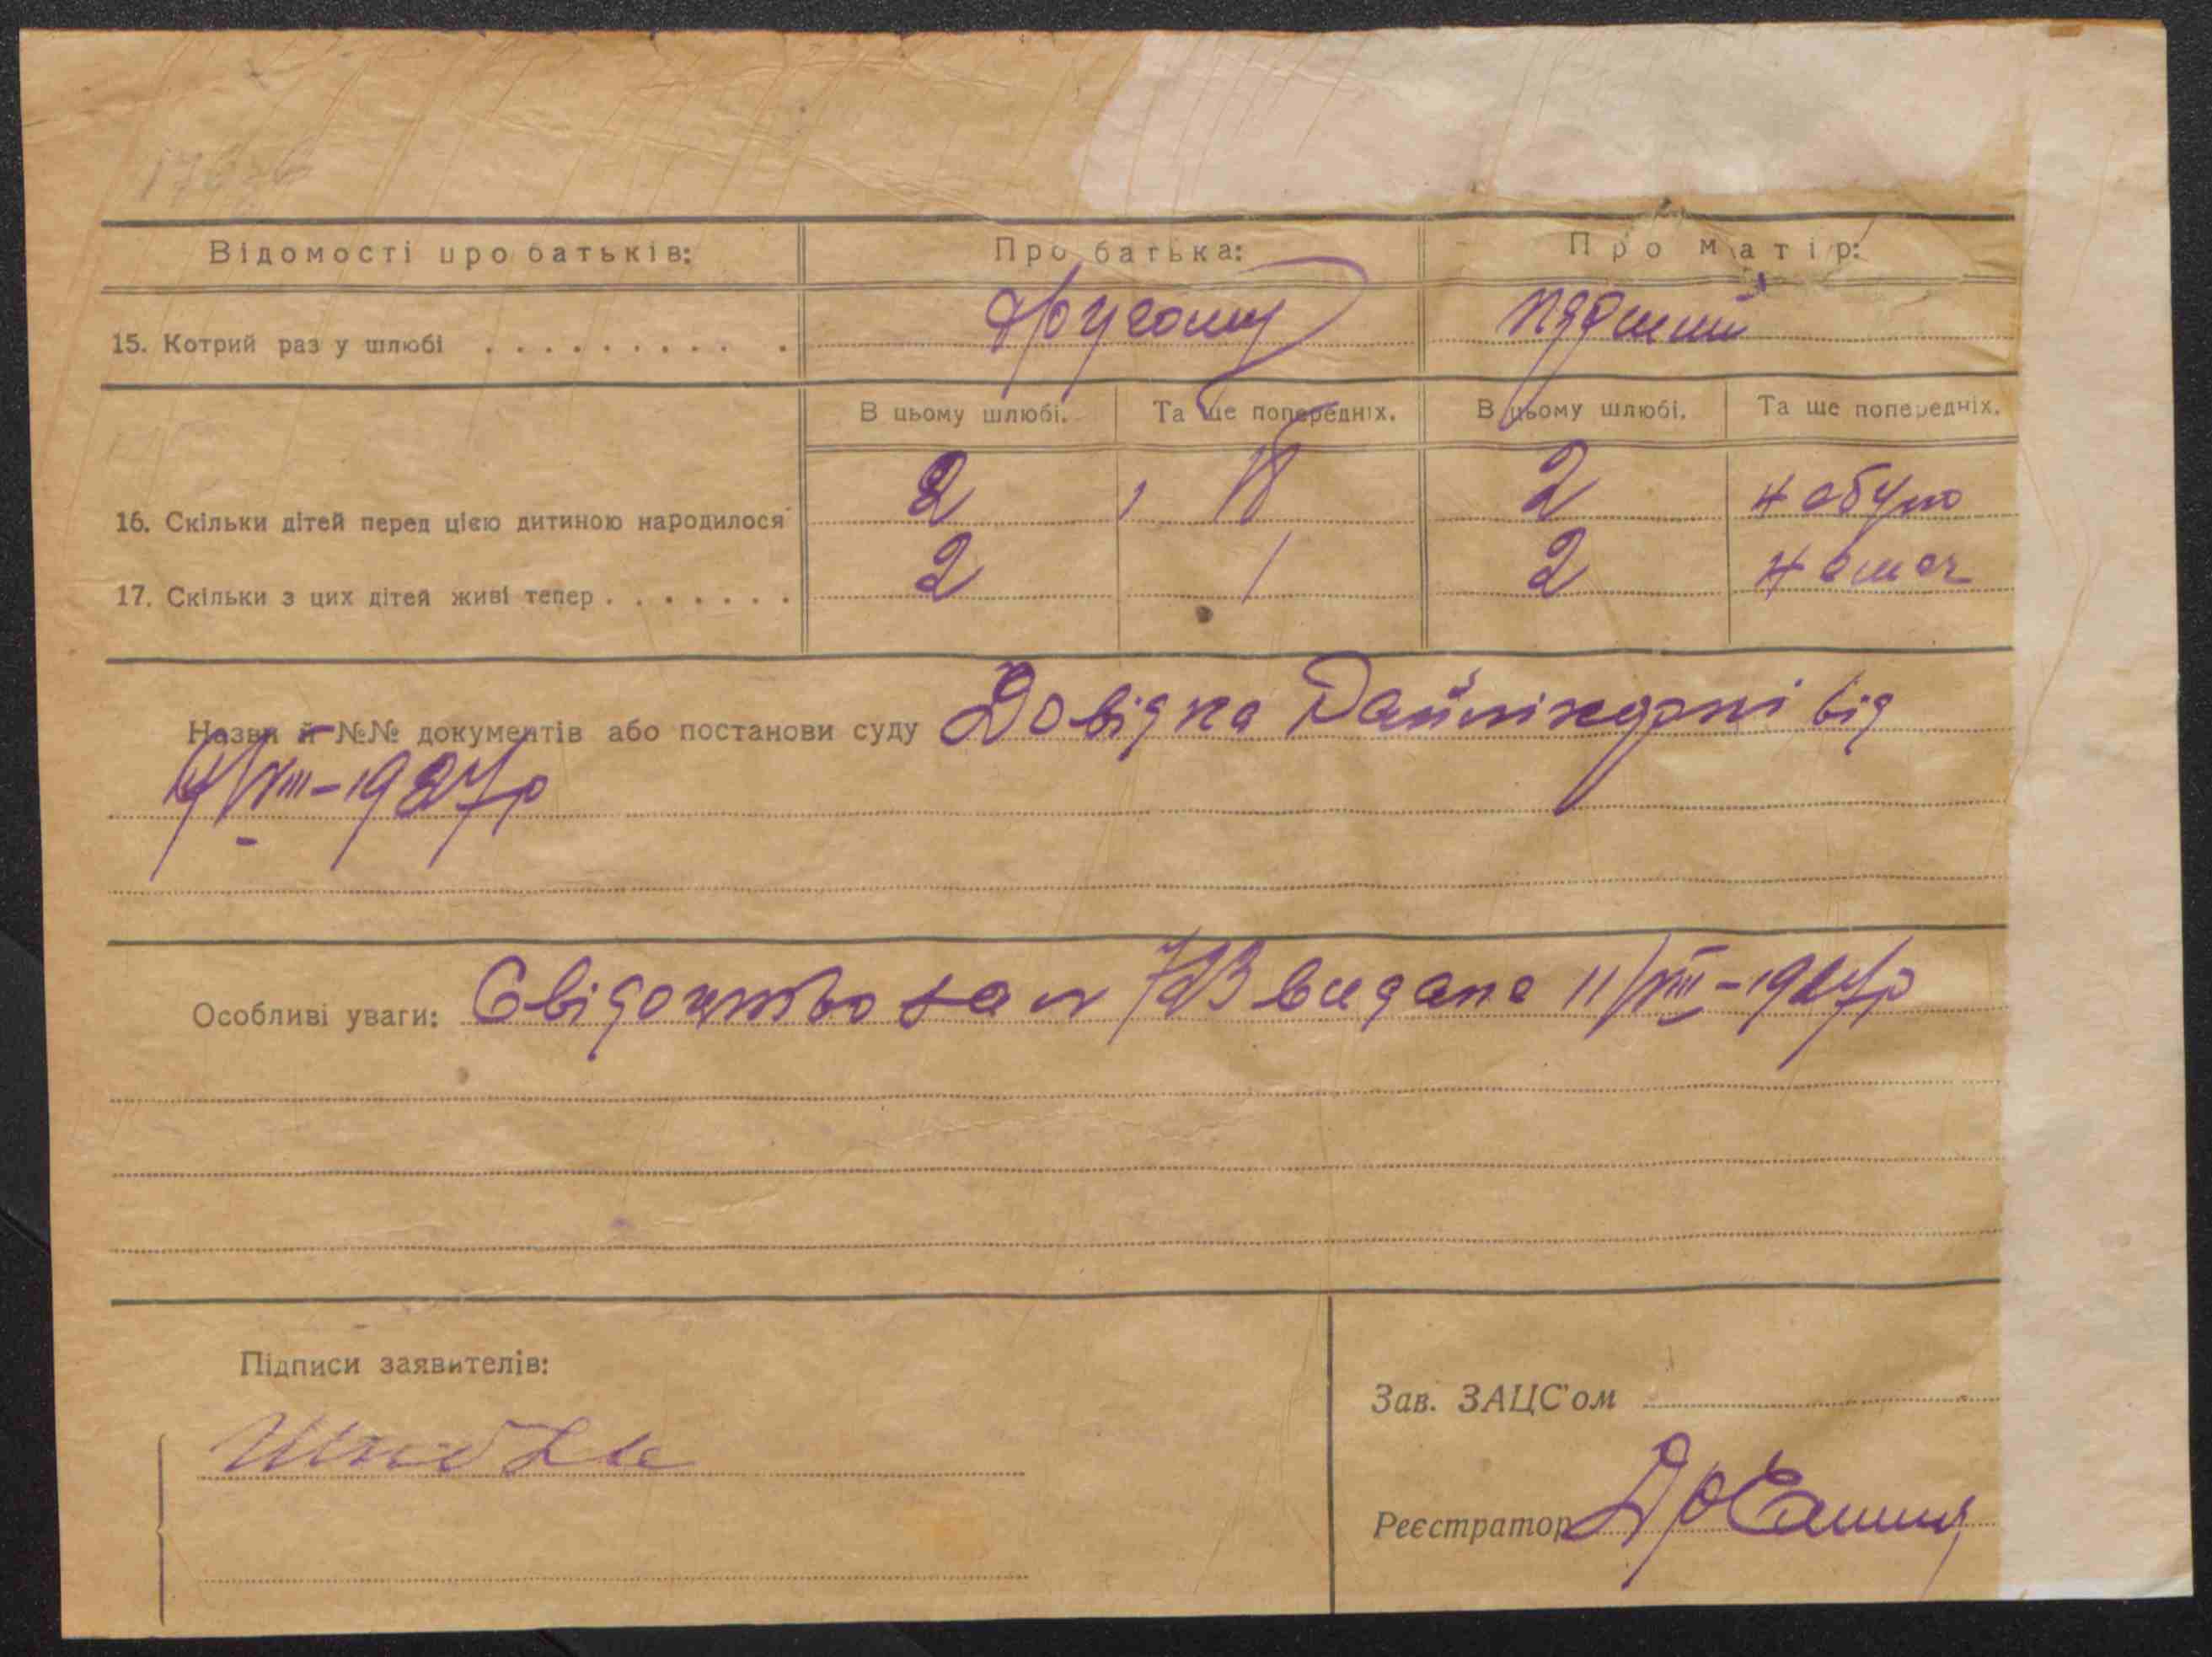 Відомості про батьків: Про батька: Про матір:
15. Котрий раз у шлюбі . . . . . . . . . . другому перший
В цьому шлюбі. Та ще попередніх. В цьому шлюбі. Та ще попередніх.
16. Скільки дітей перед цією дитиною народилося 2 2 не було
17. Скільки з цих дітей живі тепер . . . . . . . 2 1 2 немає
Назви й №№ документів або постанови суду Довідка Райлікарні від
/VIII-1927р
Особливі уваги: Свідоцтво за № 723 видано 11/VIII-1927р
Підписи заявителів:
Зав. ЗАЦС'ом
Реєстратор